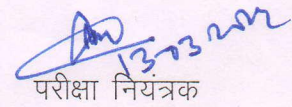 13-03-2022
परीक्षा नियंत्रक